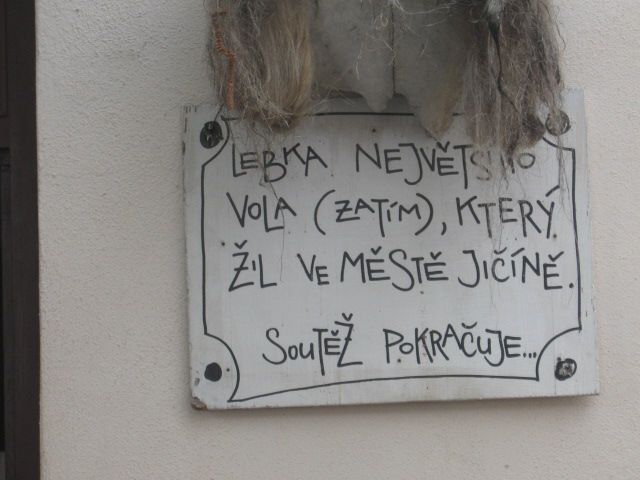 LEBKA NEJVĚTŠÍHO
VOLA (ZATÍM), KTERÝ
ŽIL VE MĚSTĚ JIČÍNĚ.
SOUTĚŽ POKRAČUJE...